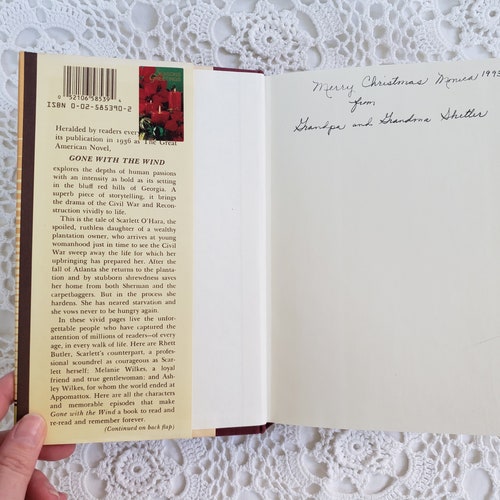 0 52106 58539 4
ISBN 0-02-585390-2
SEASON'S
GREETINGS
Heralded by readers every
its publication in 1936 as The Great
American Novel,
GONE WITH THE WIND
explores the depths of human passions
with an intensity as bold as its setting
in the bluff red hills of Georgia. A
superb piece of storytelling, it brings
the drama of the Civil War and Recon-
struction vividly to life.
This is the tale of Scarlett O'Hara, the
spoiled, ruthless daughter of a wealthy
plantation owner, who arrives at young
womanhood just in time to see the Civil
War sweep away the life for which her
upbringing has prepared her. After the
fall of Atlanta she returns to the planta-
tion and by stubborn shrewdness saves
her home from both Sherman and the
carpetbaggers. But in the process she
hardens. She has neared starvation and
she vows never to be hungry again.
In these vivid pages live the unfor-
gettable people who have captured the
attention of millions of readers—of every
age, in every walk of life. Here are Rhett
Butler, Scarlett's counterpart, a profes-
sional scoundrel as courageous as Scar-
lett herself; Melanie Wilkes, a loyal
friend and true gentlewoman; and Ash-
ley Wilkes, for whom the world ended at
Appomattox. Here are all the characters
and memorable episodes that make
Gone with the Wind a book to read and
re-read and remember forever.
(Continued on back flap)
Merry Christmas Monica 1993
from
Grandpa and Grandma Shetler